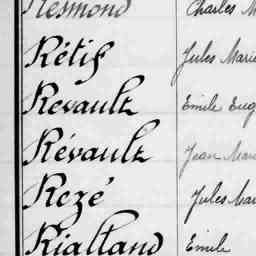 Resmond Charles M
Rétif Jules Marie
Revault Emile Eug
Révault Jean Mari
Rezé Jules Mar
Rialland Emile